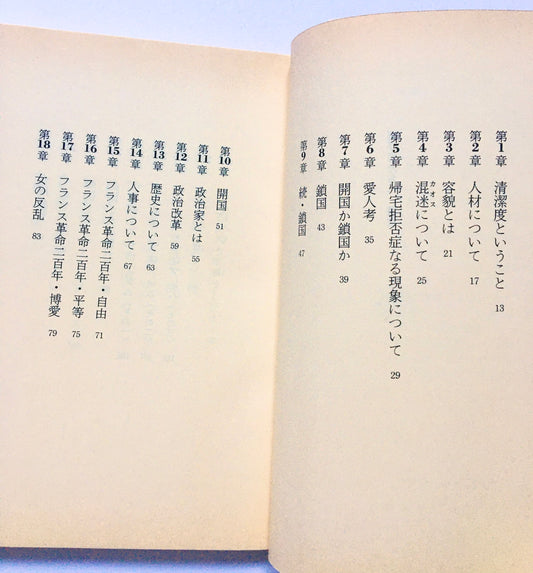 第1章 清潔度ということ 13
第2章 人材について 17
第3章 容貌とは 21
第4章 混迷について 25
カオス
第5章 帰宅拒否症なる現象について 29
第6章 愛人考 35
第7章 開国か鎖国か 39
第8章 鎖国 43
第9章 続・鎖国 47
第10章 開国 51
第11章 政治家とは 55
第12章 政治改革 59
第13章 歴史について 63
第14章 人事について 67
第15章 フランス革命二百年・自由 71
第16章 フランス革命二百年・平等 75
第17章 フランス革命二百年・博愛 79
第18章 女の反乱 83